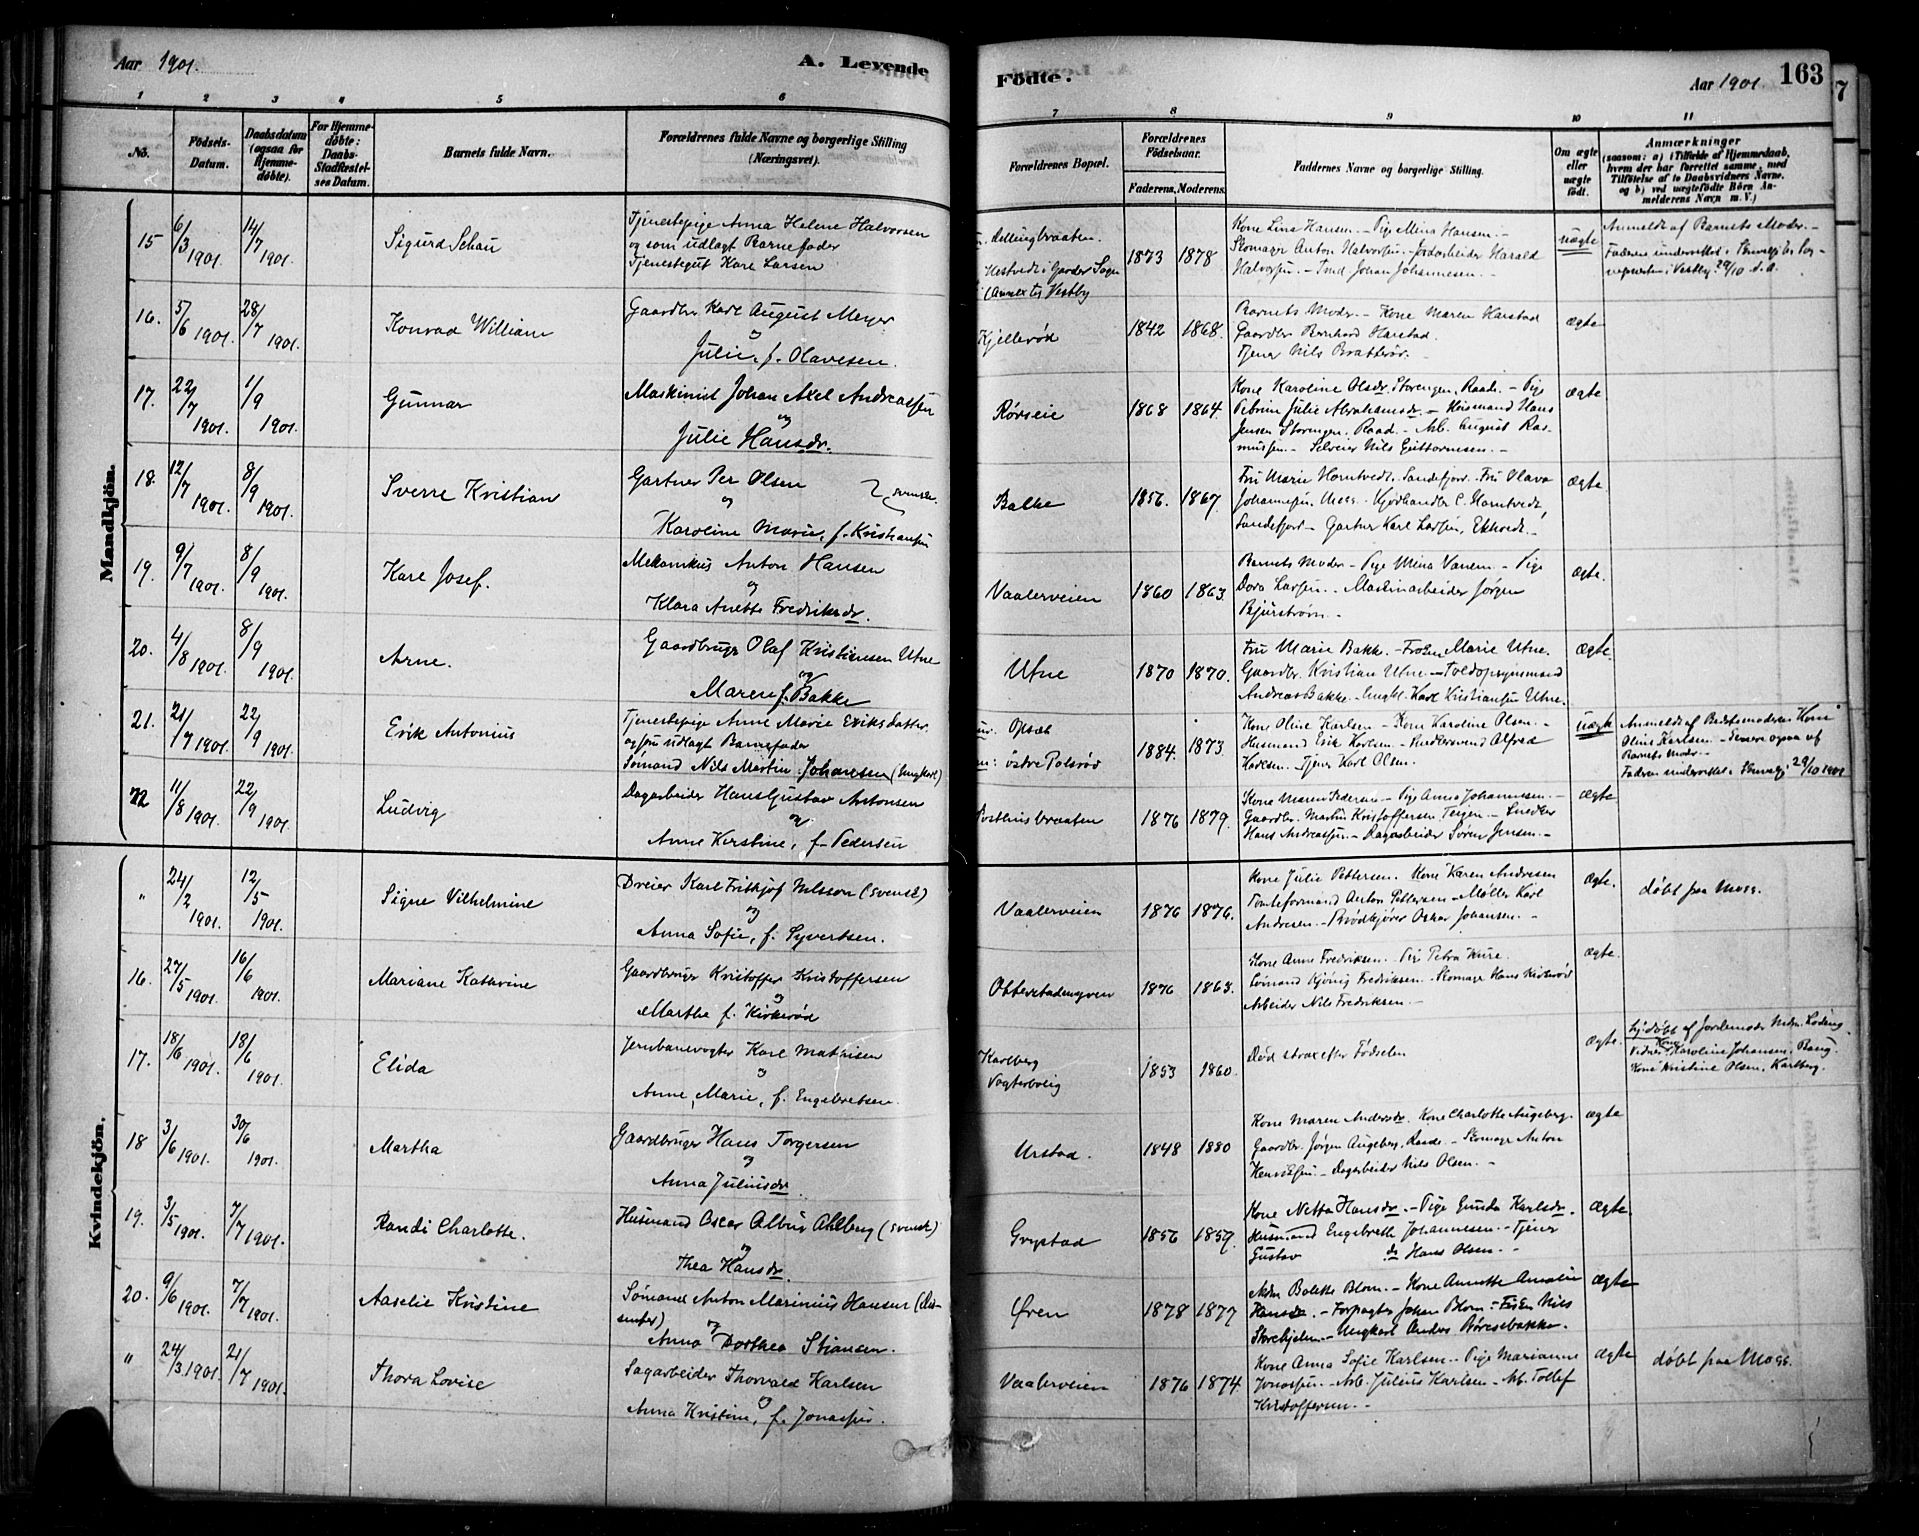 Aar 1901.
A. Levende
Födte.
Aar 1901.
163
7
1 2 3 4 5 6 7 8 9 10 11
No.
Födsels-
Datum.
Daabsdatum
(ogsaa for
Hjemme-
döbte).
For Hjemme-
döbte:
Daabs-
Stadfæstel-
ses Datum.
Barnets fulde Navn.
Forældrenes fulde Navne og borgerlige Stilling
(Næringsvei).
Forældrenes Bopæl.
Forældrenes
Födselsaar.
Faderens. Moderens.
Faddernes Navne og borgerlige Stilling.
Om ægte
eller
uægte
født.
Anmærkninger
(saasom: a) i Tilfælde af Hjemmedaab,
hvem der har forrettet samme, med
Tilföielse af to Daabsvidners Navne.
og b) ved uægtefödte Börn An-
melderens Navn m. V.)
Mandkjön.
15 6/3 1901. 14/7 1901. Sigurd Schau
Tjenestepige Anna Helene Halvorsen
og som udlagt Barnefader
Tjenestegut Karl Larsen
Dillingbraaten.
Hestvedt i Garder Sogn
(Annex til Vestby
1873 1878
Kone Lina Hansen. - Pige Mina Hansen. -
Skomager Anton Halvorsen. - Jordarbeider Harald
Halvorsen. - Tmd Johan Johannesen. -
uægte
Anmeldt af Barnets Moder. -
Faderen underrettet i
i Vestby 29/10 d. a.
16. 5/6 1901. 28/7 1901. Konrad William
Gaardbr. Karl August Meyer
og
Julie, f. Olavesen.
Kjellerød
1842 1868.
Barnets Moder. - Kone Maren Harstad
Gaardbr. Bernhard Harstad.
Tjener Nils Bratterør. -
ægte
17. 22/7 1901. 1/9 1901. Gunnar
Maskinist Johan Axel Andreassen
og
Julie Hansdr.
Rørseie
1868 1864.
Kone Karoline Olsdr. Storengen, Raade. - Pige
Petrine Julie Abrahamsdr. - Husmand Hans
Jensen Storengen, Raad. - Arb. August Ras-
mussen. - Selveier Nils Guttormsen. -
ægte
18. 12/7 1901. 8/9 1901. Sverre Kristian
Gartner Per Olsen
og } svensk.
Karoline Marie, f. Kristiansen
Balke
1856. 1867.
Fru Marie Horntvedt, Sandefjord. Fru Olava
Johannesen, Moss. Kjødhandler C. Horntvedt,
Sandefjord. - Gartner Karl Larsen, Ekholdt. -
ægte.
19. 9/7 1901. 8/9 1901. Karl Josef.
Mekanikus Anton Hansen
og
Klara Anette Fredriksdr.
Vaalerveien
1860 1863.
Barnets Moder - Pige Mina Vanem - Pige
Dora Larsen. - Maskinarbeider Jørgen
Bjurstrøm -
ægte.
20. 4/8 1901. 8/9 1901. Arne.
Gaardbruger Olaf Kristiansen Utne
og
Maren f. Bakke
Utne
1870 1870.
Fru Marie Bakke. - Frøken Marie Utne.
Gaardbr. Kristian Utne - Toldopsynsmand
Andreas Bakke. - Ungkl. Karl Kristiansen Utne.
ægte.
21. 21/7 1901. 22/9 1901. Erik Antonius
Tjenestepige Anne Marie Eriksdatter
og som udlagt Barnefader
Sømand Nils Martin Johansen (Ungkarl)
Opsæt
østre Polsrød
1884. 1873
Kone Oline Karlsen - Kone Karoline Olsen. -
Husmand Erik Karlsen. - Snedkersvend Alfred
Karlsen. Tjener Karl Olsen.
uægte
Anmeldt af Bedstemoderen Kone
Oline Karlsen. - Senere ogsaa af
Barnets Moder. -
Faderen underrettet 29/10 1901
22 11/8 1901. 22/9 1901. Ludvig
Dagarbeider Hans Gustav Antonsen
og
Anne Kirstine, f. Pedersen
1876 1879.
Kone Maren Pedersen - Pige Anna Johannesen. -
Gaardbr. Martin Kristoffersen Teigen. - Snedker
Hans Andreassen. - Dagarbeider Søren Jensen. -
ægte
Kvindekjön.
" 24/2 1901. 12/5 1901. Signe Vilhelmine
Dreier Karl Fritkjof Nilsson (svensk)
og
Anna Sofie, f. Syvertsen.
Vaalerveien
1876 1876.
Kone Julie Pettersen. Kone Karen Andresen
Tomteformand Anton Pettersen - Møller Karl
Andresen. - Brødkjører Oskar Johansen. -
ægte.
døbt paa Moss.
16. 27/5 1901. 16/6 1901. Mariane Kathrine
Gaardbruger Kristoffer Kristoffersen
og
Marthe f. Kirkerød
1876 1863.
Kone Anne Fredriksen - Pige Petra Kure.
Sømand Kjønig Fredriksen. - Skomager Hans Kirkerød
Arbeider Nils Fredriksen -
ægte.
17. 18/6 1901. 18/6 1901. Elida
Jernbanevogter Karl Mathisen
og
Anne Marie, f. Engebretsen.
Karlberg
Vogterbolig
1853 1860.
Død strax efter Fødselen
ægte.
Hj.døbt af Jordemoder Mdm.
Vidner: Kone Karoline Johansen, Baug.
Kone Kristine Olsen, Karlberg.
18 3/6 1901. 30/6 1901. Martha
Gaardbruger Hans Torgersen
og
Anna Juliusdr.
Urstad.
1848 1880
Kone Maren Andersdr. Kone Charlotte Augeberg.
Gaardbr. Jørgen Augeberg, Raade. - Skomager Anton
Henriksen. - Dagarbeider Nils Olsen. -
ægte
19. 3/5 1901. 7/7 1901. Randi Charlotte.
Husmand Oscar Albin Ahlberg (svensk)
og
Thea Hansdr.
Grystad
1856 1859.
Kone Netta Hansdr. - Pige Gunda Karlsdr.
Husmand Engebreth Johannesen. - Tjener
Gustav do Hans Olsen. -
ægte
20. 9/6 1901. 7/7 1901. Aaselie Kristine
Sømand Anton Marinius Hansen (Dis-
senter)
og
Anna Dorthea Stiansen.
Øren
1878 1877
Mdm Bolette Blom. - Kone Annette Amalie
Hansdr. - Forpagter Johan Blom - Nils
Storehjelm. - Ungkarl Anders Rørsesbakke.
ægte
" 24/3 1901. 21/7 1901. Thora Lovise
Sagarbeider Thorvald Karlsen
og
Anna Kristine, f. Jonassen.
Vaalerveien
1876 1874.
Kone Anna Sofie Karlsen. - Pige Marianne
Jonassen. - Arb. Julius Karlsen. - Arb. Tollef
Kristoffersen. -
ægte
døbt paa Moss.